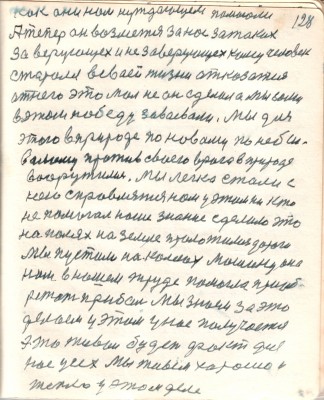 128
как они нам нуждающем помогли
А теперь он возмется за нас за таких
За верующих и не заверующих кому человек
старался в своей жизни отказатся
от него это мол не он сделал а мы сами
в этом победу завоевали. Мы для
этого в природе по новому по небы-
валому против своего врага в природе
вооружились. Мы легко стали с
нею справлятся нам у этим ни кто
не помогал наше знание сделало это
на полях на земле проложились дороги
Мы пустили на колесах машину она
нам в нашем труде помогла приоб-
ретат прибыл Мы знаем за это
делаем у этом у нас получается
Это живый будет факт для
нас усех Мы живем хорошо и
тепло у этом деле